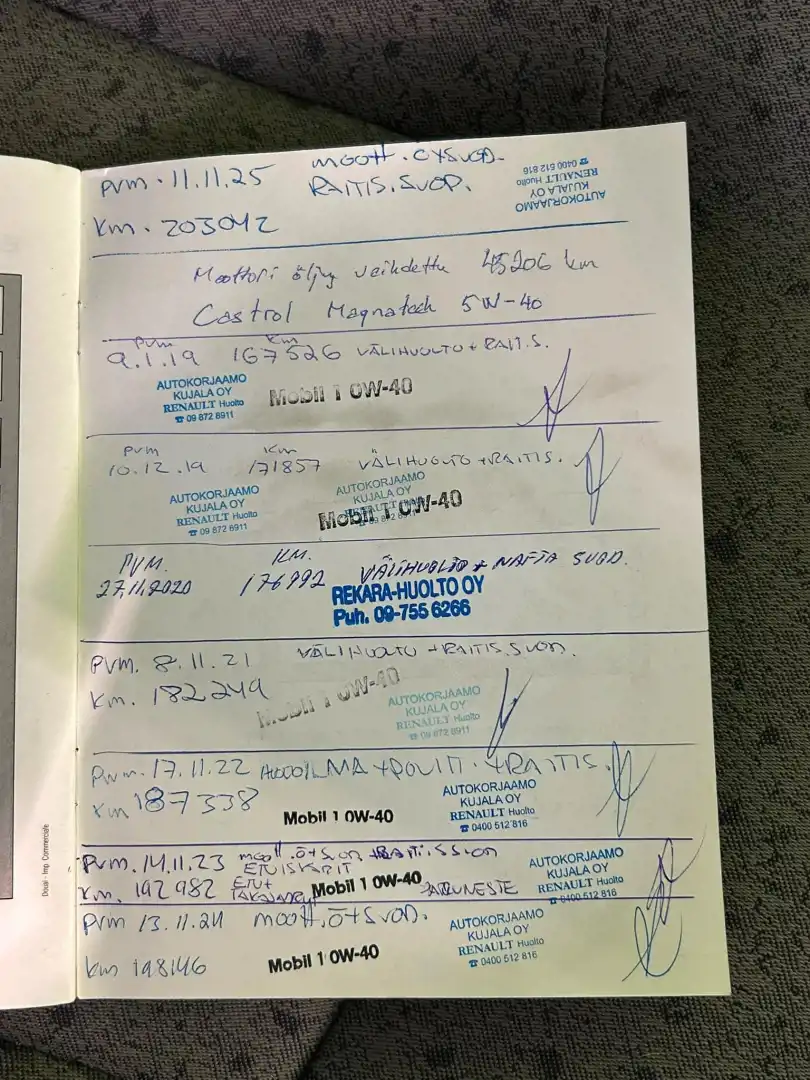 pvm. 11.11.25 moott. Ö+SUOD.
RAITIS.SUOD.
Km. 203042
AUTOKORJAAMO
KUJALA OY
RENAULT Huolto
☎ 0400 512 816
Moottori öljy vaihdettu 45206 km
Castrol Magnatech 5W-40
Pvm Km
9.1.19 167526 VÄLIHUOLTO + RAIT.S.
AUTOKORJAAMO
KUJALA OY
RENAULT Huolto
☎ 09 872 8911
Mobil 1 0W-40
Pvm Km
10.12.19 171857 VÄLIHUOLTO + RAITIS.
AUTOKORJAAMO
KUJALA OY
RENAULT Huolto
☎ 09 872 8911
AUTOKORJAAMO
KUJALA OY
Mobil 1 0W-40
PVM. KM.
27.11.2020 176992 VÄLIHUOLTO + NAFTA SUOD.
REKARA-HUOLTO OY
Puh. 09-755 6266
PVM. 8.11.21 VÄLIHUOLTO + RAITIS.SUOD.
Km. 182249
Mobil 1 0W-40
AUTOKORJAAMO
KUJALA OY
RENAULT Huolto
☎ 09 872 8911
Pvm. 17.11.22 +RAITIS.
Km 187338
Mobil 1 0W-40
AUTOKORJAAMO
KUJALA OY
RENAULT Huolto
☎ 0400 512 816
Pvm. 14.11.23 moott.ö+suod +RAITISSUOD
ETUISKARIT
Km. 192982 ETU+
TAKAJARRUT
Mobil 1 0W-40
JARRUNESTE
AUTOKORJAAMO
KUJALA OY
RENAULT Huolto
☎ 0400 512 816
Pvm 13.11.24 moott.ö+SUOD.
km 198146
Mobil 1 0W-40
AUTOKORJAAMO
KUJALA OY
RENAULT Huolto
☎ 0400 512 816
Docal - Imp. Commerciale